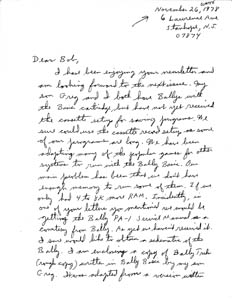 November 26, 1978
6 Lawrence Ave
Stanhope, N.J.
07874
Dear Bob,
I have been enjoying your newsletter and
am looking forward to the next issue. My
son Greg and I both have Ballys with
the Basic cartridge but have not yet received
the cassette setup for saving programs. We
sure could use the cassette record setup as some
of our programs are long. We have been
adapting many of the popular games for other
systems to run with the Bally Basic. Our
main problem has been that we don't have
enough memory to run some of them. If we
only had 4 to 8K more RAM. Incidently, in
one of your letters you mentioned we would be
getting the Bally PA-1 Service Manual as a
courtesy from Bally. As yet we haven't received it.
I sure would like to obtain a schematic of the
Bally. I am enclosing a copy of Bally Trek
(rough copy) written in Bally Basic by my son
Greg. It was adapted from a version written